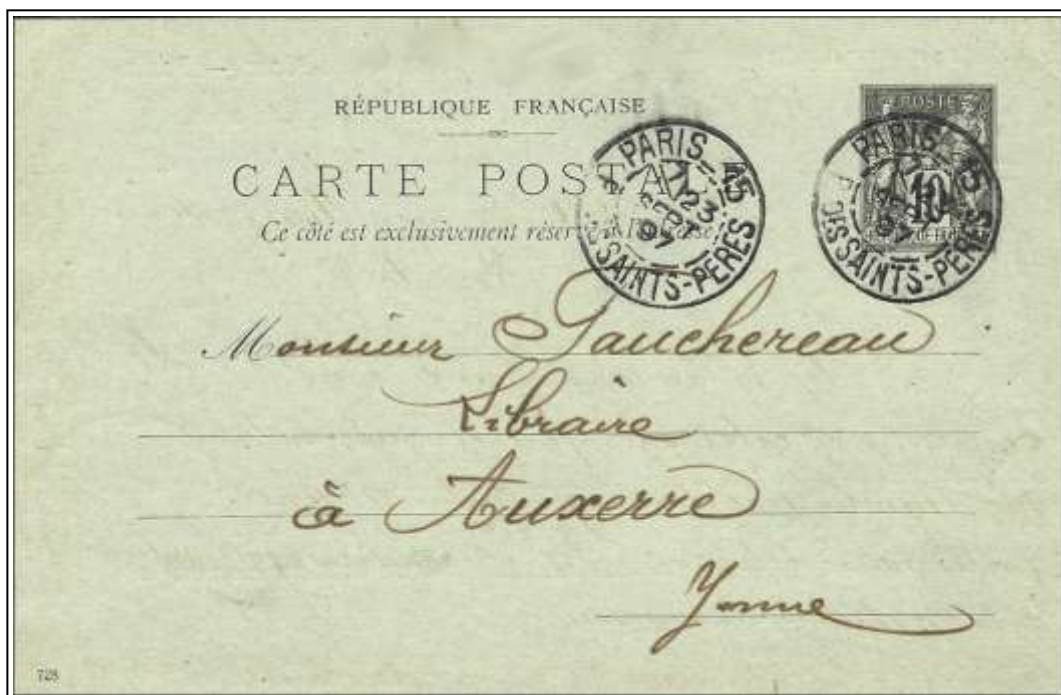 RÉPUBLIQUE FRANÇAISE
CARTE POSTALE
Ce côté est exclusivement réservé à l'adresse
POSTE
10
PARIS 15
7 23
SEPT
97
R. DES SAINTS-PÈRES
PARIS 15
97
R. DES SAINTS-PÈRES
Monsieur Gauchereau
Libraire
à Auxerre
Yonne
728